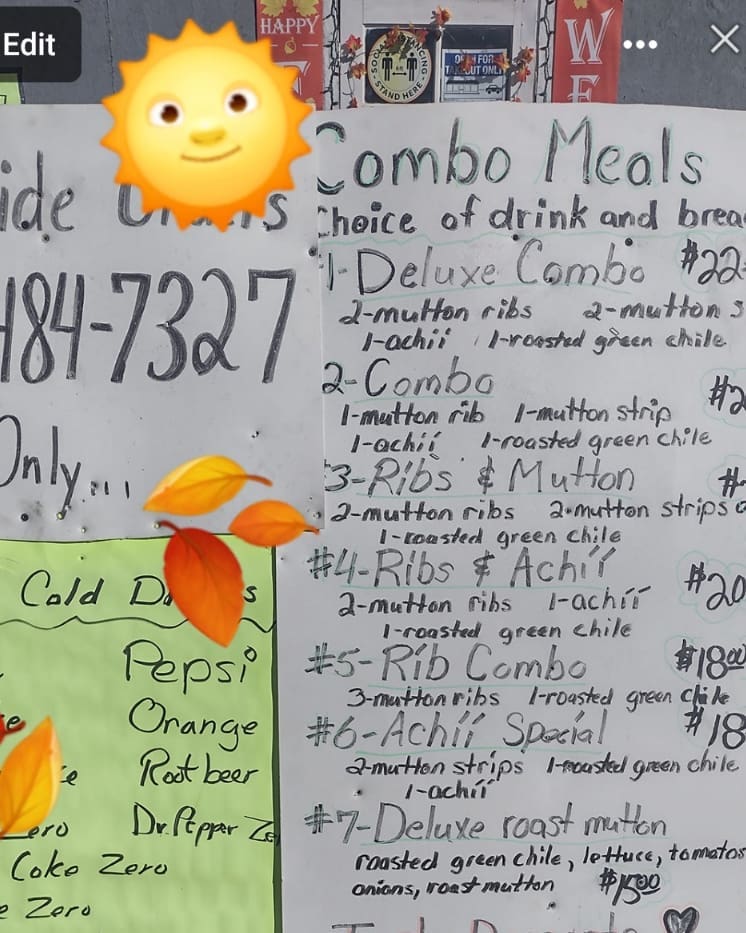 Edit
HAPPY
SOCIAL DISTANCING
STAND HERE
OPEN FOR
TAKE-OUT ONLY
WE
ide
484-7327
Only...
Cold
Pepsi
Orange
Root beer
Dr. Pepper
Coke Zero
Zero
Combo Meals
Choice of drink and
#1-Deluxe Combo $22
2-mutton ribs 2-mutton
1-achíí 1-roasted green chile
2-Combo
1-mutton rib 1-mutton strip
1-achíí 1-roasted green chile
#3-Ribs & Mutton
2-mutton ribs 2-mutton strips
1-roasted green chile
#4-Ribs & Achíí $20
2-mutton ribs 1-achíí
1-roasted green chile
#5-Rib Combo $18.00
3-mutton ribs 1-roasted green chile
#6-Achíí Special $18
2-mutton strips 1-roasted green chile
1-achíí
#7-Deluxe roast mutton
roasted green chile, lettuce, tomatos
onions, roast mutton $15.00